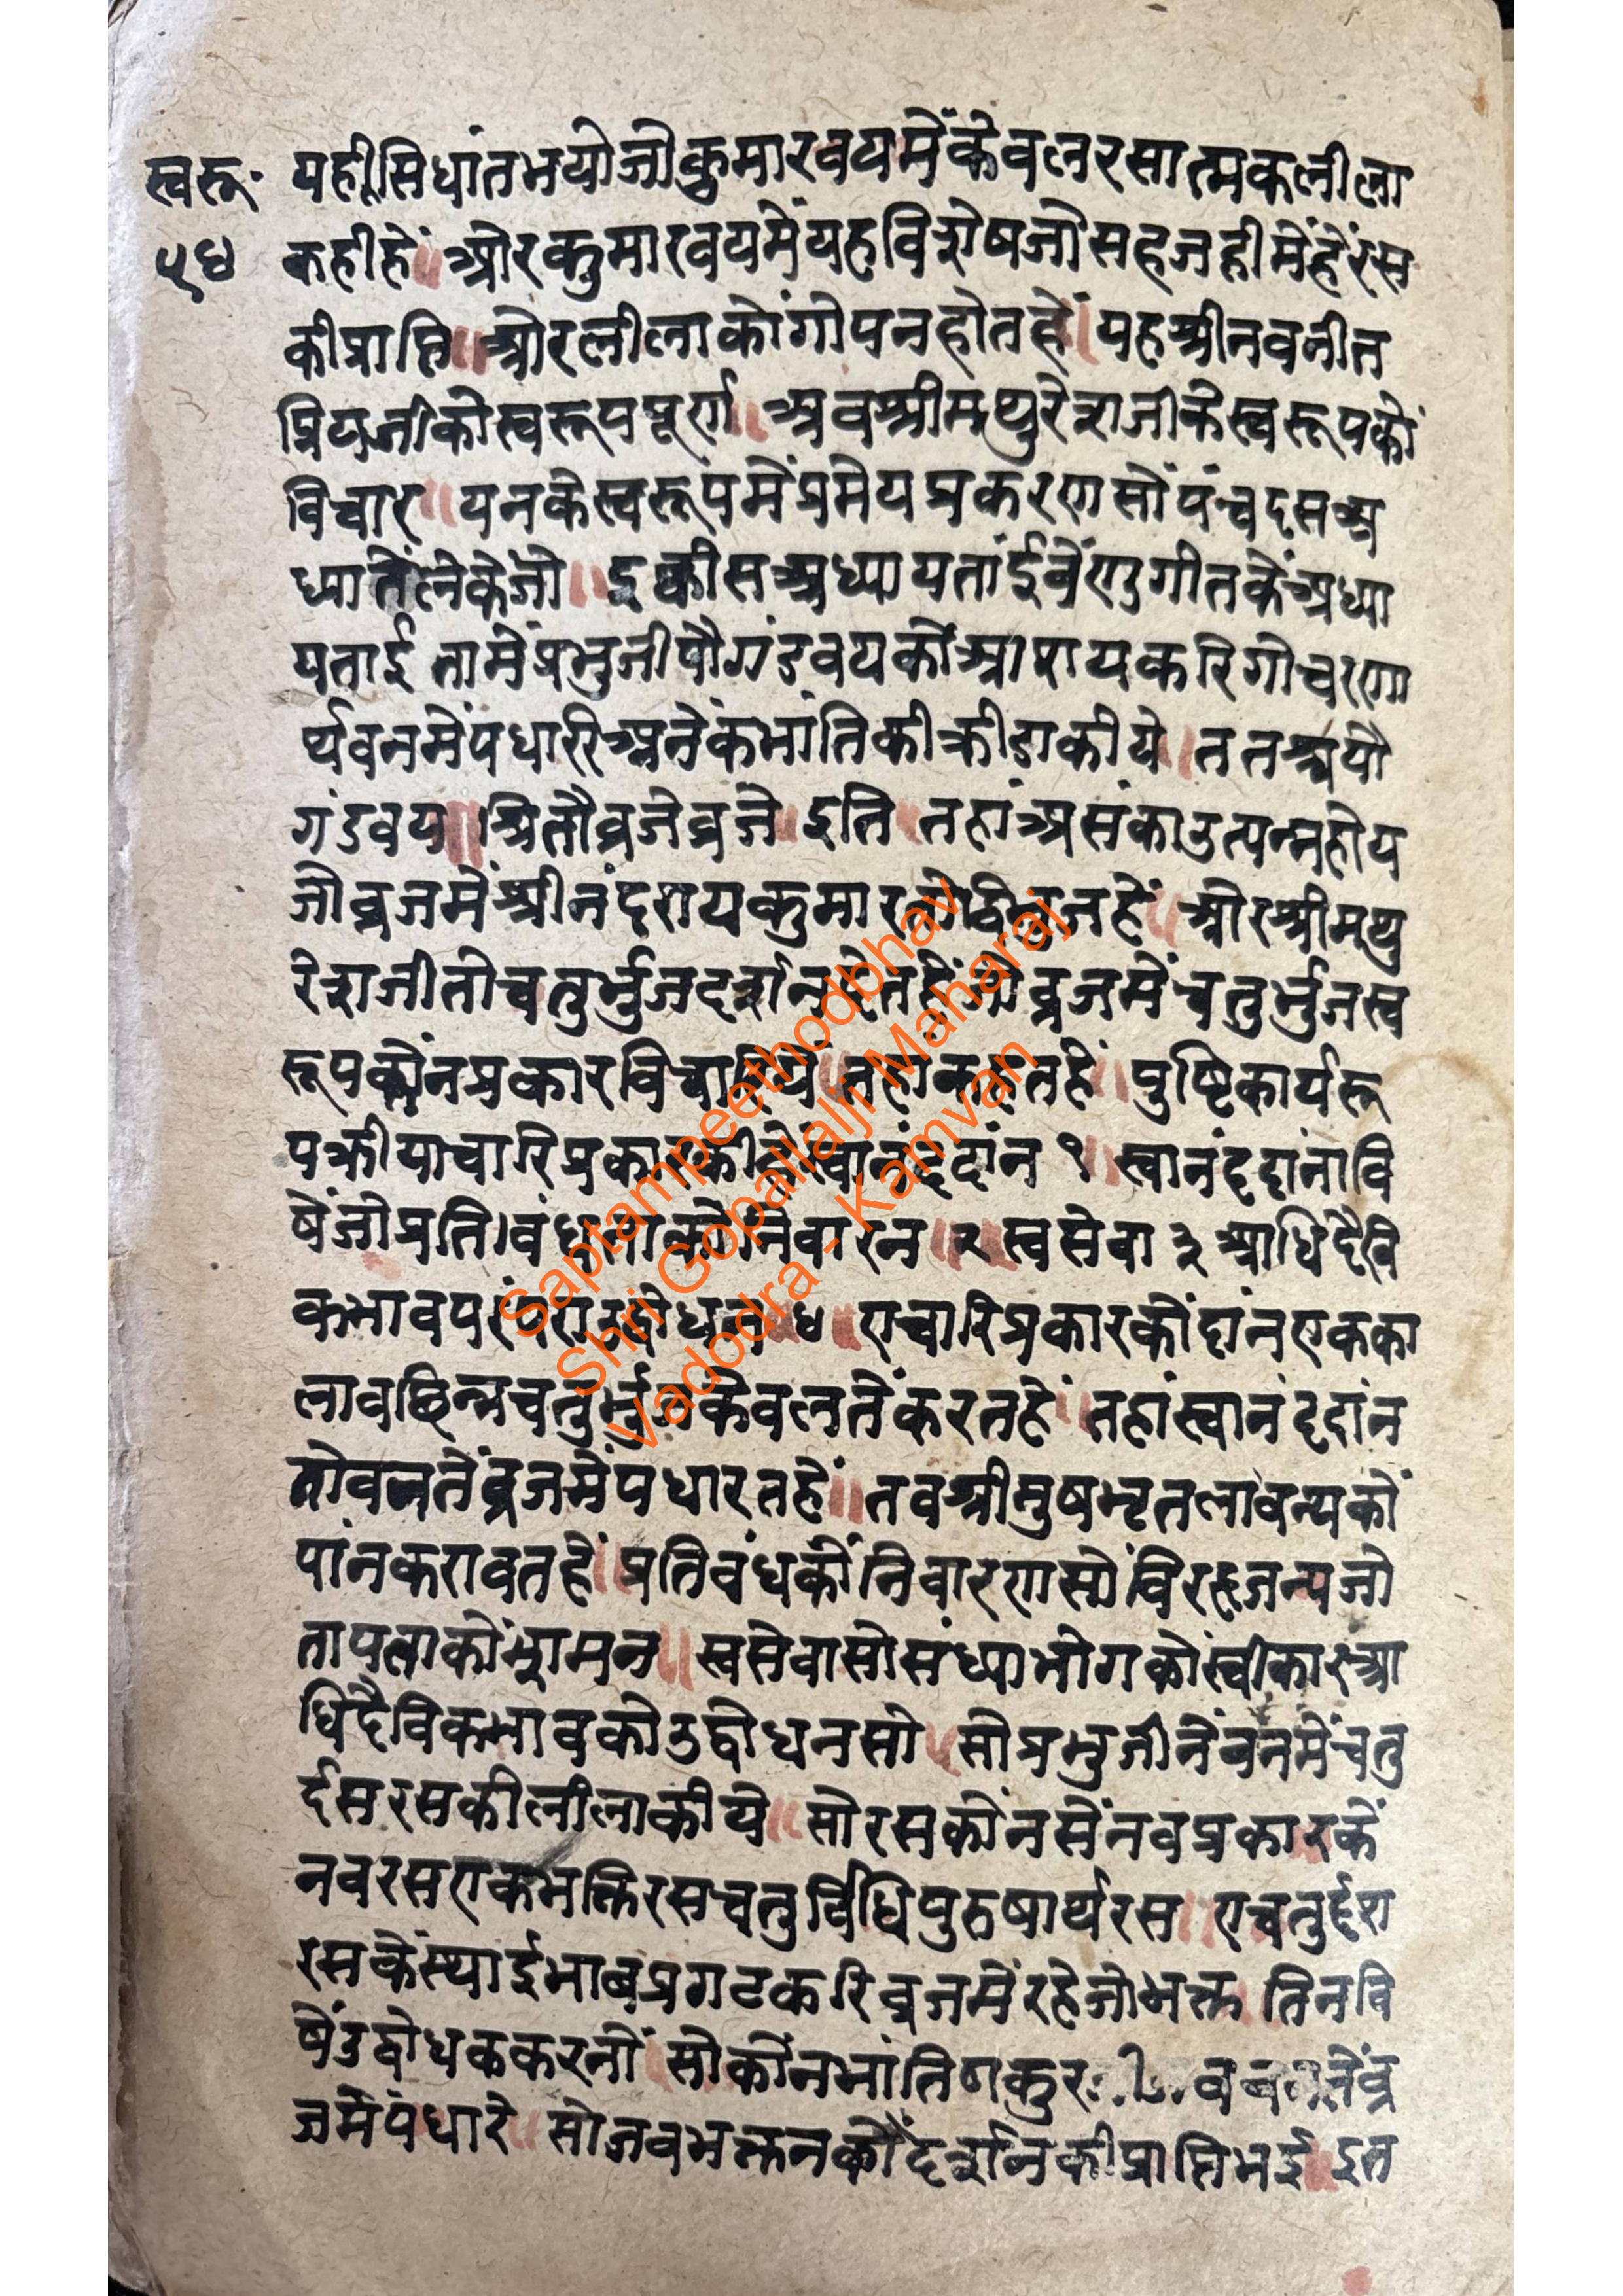 स्वरू॰
५४
यहीसिधांतभयोजोकुमारवयमेंकेवलरसात्मकलीला
कहीहें॥ओरकुमारवयमेंयहविशेषजोसहजहीमेंहेंरस
कीप्राप्ति॥ओरलीलाकोंगोपनहोतहें।यहश्रीनवनीत
प्रियजीकोस्वरूपपूर्ण॥अबश्रीमथुरेशजीकेस्वरूपकों
विचार॥यनकेस्वरूपमेंप्रमेयप्रकरणसोंपंचदसअ
ध्यातेंलेकेंजो॥इकीसअध्यायतांईवेंणुगीतकेंअध्या
यताई तामेंप्रभुजीपौगंडवयकोंआश्रायकरिगोचरणा
र्थवनमेंपधारिअनेकभांतिकीक्रीडाकीये॥ततश्चपौ
गंडवय॥श्रितौव्रजेव्रजे॥इति॥तहांअसंकाउत्पन्नहोय
जोव्रजमेंश्रीनंदरायकुमारतोद्विभुजहें॥ओरश्रीमथु
रेशजीतोचतुर्भुजदर्शनदेतहेंजोव्रजमेंचतुर्भुजस्व
रूपकोंनप्रकारविचारिये॥तहांकहतहें॥पुष्टिकार्यरू
पक्रीयाचारिप्रकारकीहेस्वानंददांन१॥स्वानंददांनावि
षेंजोप्रतिबंधताकोनिवारन॥२॥स्वसेवा३आधिदैवि
कभावपरंपराउद्बोधन॥४॥एचारिप्रकारकोंदांनएकका
लावछिन्नचतुर्भुजकेवलतेंकरतहें॥तहांस्वानंददांन
तोवनतेंव्रजमेंपधारतहें॥तवश्रीमुषामृतलावन्यकों
पांनकरावतहें॥प्रतिबंधकोंनिवारणसोंविरहजन्यजो
तापताकोंशमन॥स्वसेवासोसंध्याभोगकोस्वीकारआ
धिदैविकभावकोउद्बोधनसो॥सोप्रभुजीनेंवनमेंचतु
र्दसरसकीलीलाकीये॥सोरसकोनसेंनवप्रकारकें
नवरसएकभक्तिरसचतुर्विधिपुरुषार्थरस॥एचतुर्दश
रसकेंस्थाईभावप्रगटकरिव्रजमेंरहेजोभक्त॥तिनवि
षेंउद्बोधककरनों॥सोकोंनभांतिठाकुर वनतेंव्र
जमेंपधारे॥सोजवभक्तनकोंदर्शनकीप्राप्तिभई॥इत
Saptampeethodbhav
Shri Gopallalji Maharaj
Vadodra - Kamvan